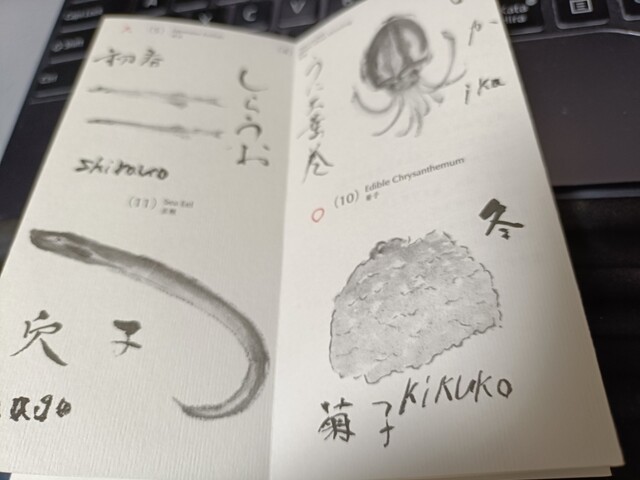 初春
しらうお
shirauo
(11) Sea Eel
穴子
穴子
ago
うに大葉巻
ika
(10) Edible Chrysanthemum
菊子
冬
菊子
kikuko